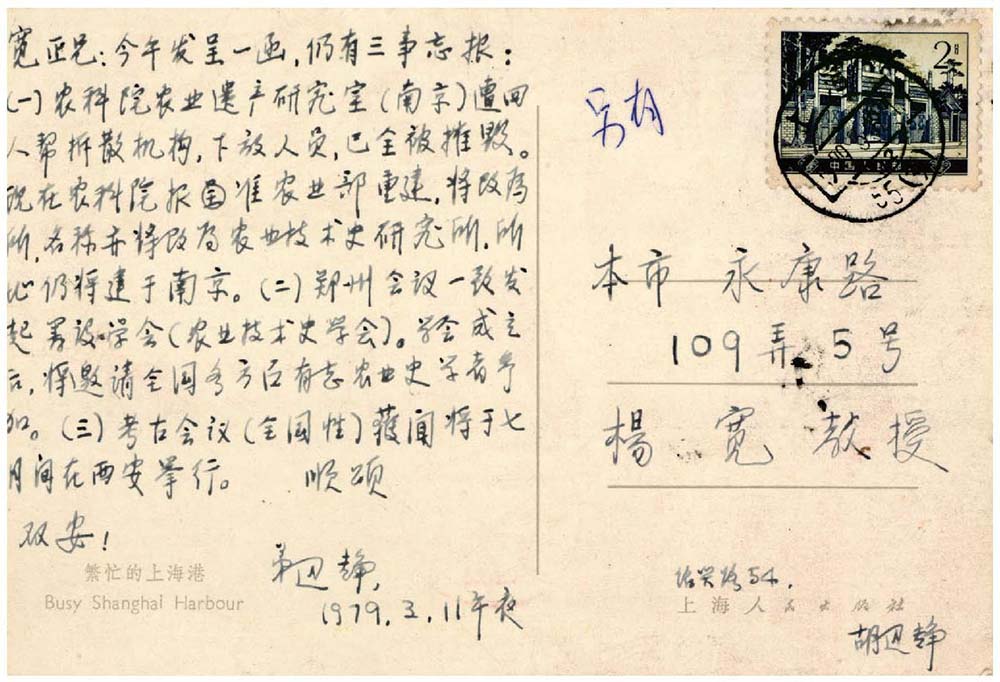 宽正兄：今午发呈一函，仍有三事忘报：
(一)农科院农业遗产研究室(南京)遭四
人帮拆散机构，下放人员，已全被摧毁。
现在农科院报国准农业部重建，将改为
所，名称亦将改为农业技术史研究所，所
址仍将建于南京。(二)郑州会议一致发
起筹设学会(农业技术史学会)。学会成立
后，将邀请全国各方面有志农业史学者参
加。(三)考古会议(全国性)获闻将于七
月间在西安举行。 顺颂
双安！
弟迺静，
1979.3.11午夜
繁忙的上海港
Busy Shanghai Harbour
另有
2分
中国人民邮政
55
本市 永康路
109弄5号
楊寬教授
绍兴路54.
上海人民出版社
胡迺静